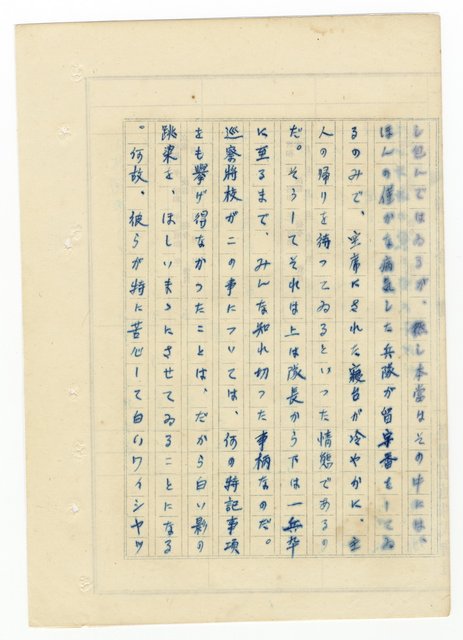 し包んではゐるが、然し本當はその中には、
ほんの僅かな病気した兵隊が留守番をしてゐ
るのみで、空席にされた寢台が冷やかに、主
人の帰りを待つてゐるといつた情態であるの
だ。そうしてそれは上は隊長から下は一兵卒
に至るまで、みんな知れ切つた事柄なのだ。
巡察將校がこの事については、何の特記事項
をも擧げ得なかつたことは、だから白い影の
跳梁を、ほしいまゝにさせてゐることになる
。何故、彼らが特に苦心して白いワイシャツ